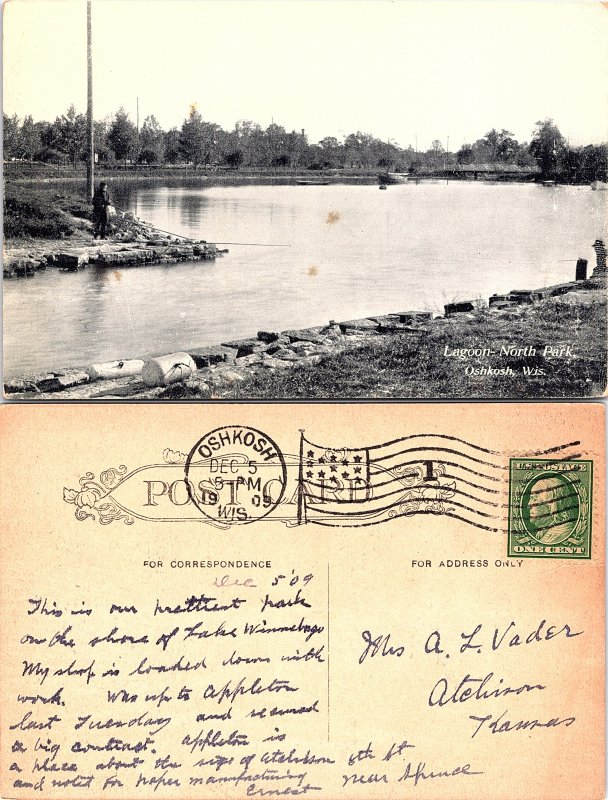 Lagoon - North Park,
Oshkosh, Wis.
OSHKOSH
DEC 5
5 PM
1909
WIS.
1
POST CARD
U.S. POSTAGE
ONE CENT
FOR CORRESPONDENCE
FOR ADDRESS ONLY
Dec 5 '09
This is our prettiest park
on the shore of Lake Winnebago
My shop is loaded down with
work. Was up to Appleton
last Tuesday and secured
a big contract. Appleton is
a place about the size of Atchison
and noted for paper manufacturing
Ernest
Mrs A. L. Vader
Atchison
Kansas
6th St.
near Spruce